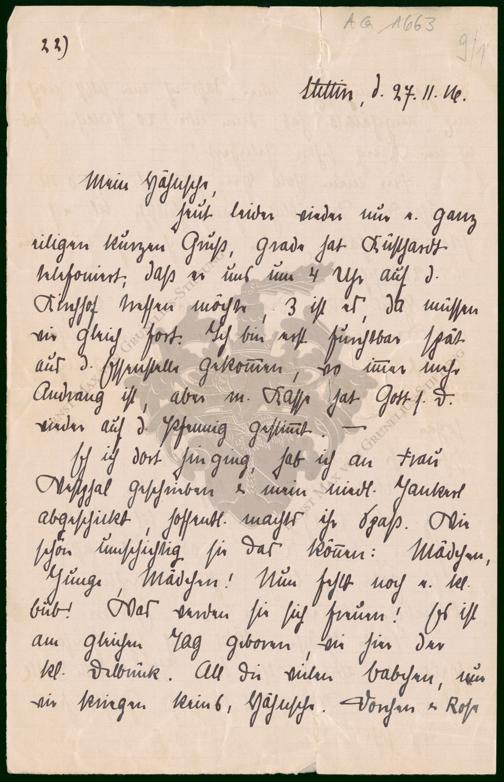 AG 1663
9/1
22)
Stettin, d. 27. 11. 16.
Mein Hähnsche,
heut leider wieder nur e. ganz
eiligen kurzen Gruß, grade hat Küsthardt
telefoniert, daß er uns um 4 Uhr auf d.
Kirchhof treffen möchte, 3 ist es, da müssen
wir gleich fort. Ich bin erst furchtbar spät
aus d. Essenstelle gekommen, wo immer mehr
Andrang ist, aber m. Kasse hat Gott s. D.
wieder auf d. Pfennig gestimmt. —
Eh ich dort hinging, hab ich an Frau
Westphal geschrieben & mein niedl. Jankerl
abgeschickt, hoffentl. machts ihr Spaß. Wie
schön umschichtig sie das können: Mädchen,
Junge, Mädchen! Nun fehlt noch e. kl.
bub! Was werden sie sich freuen! Es ist
am gleichen Tag geboren wie hier der
kl. Delbrück. All die vielen babchen, nur
wir kriegen keins, Hähnsche. Dorchen & Rose